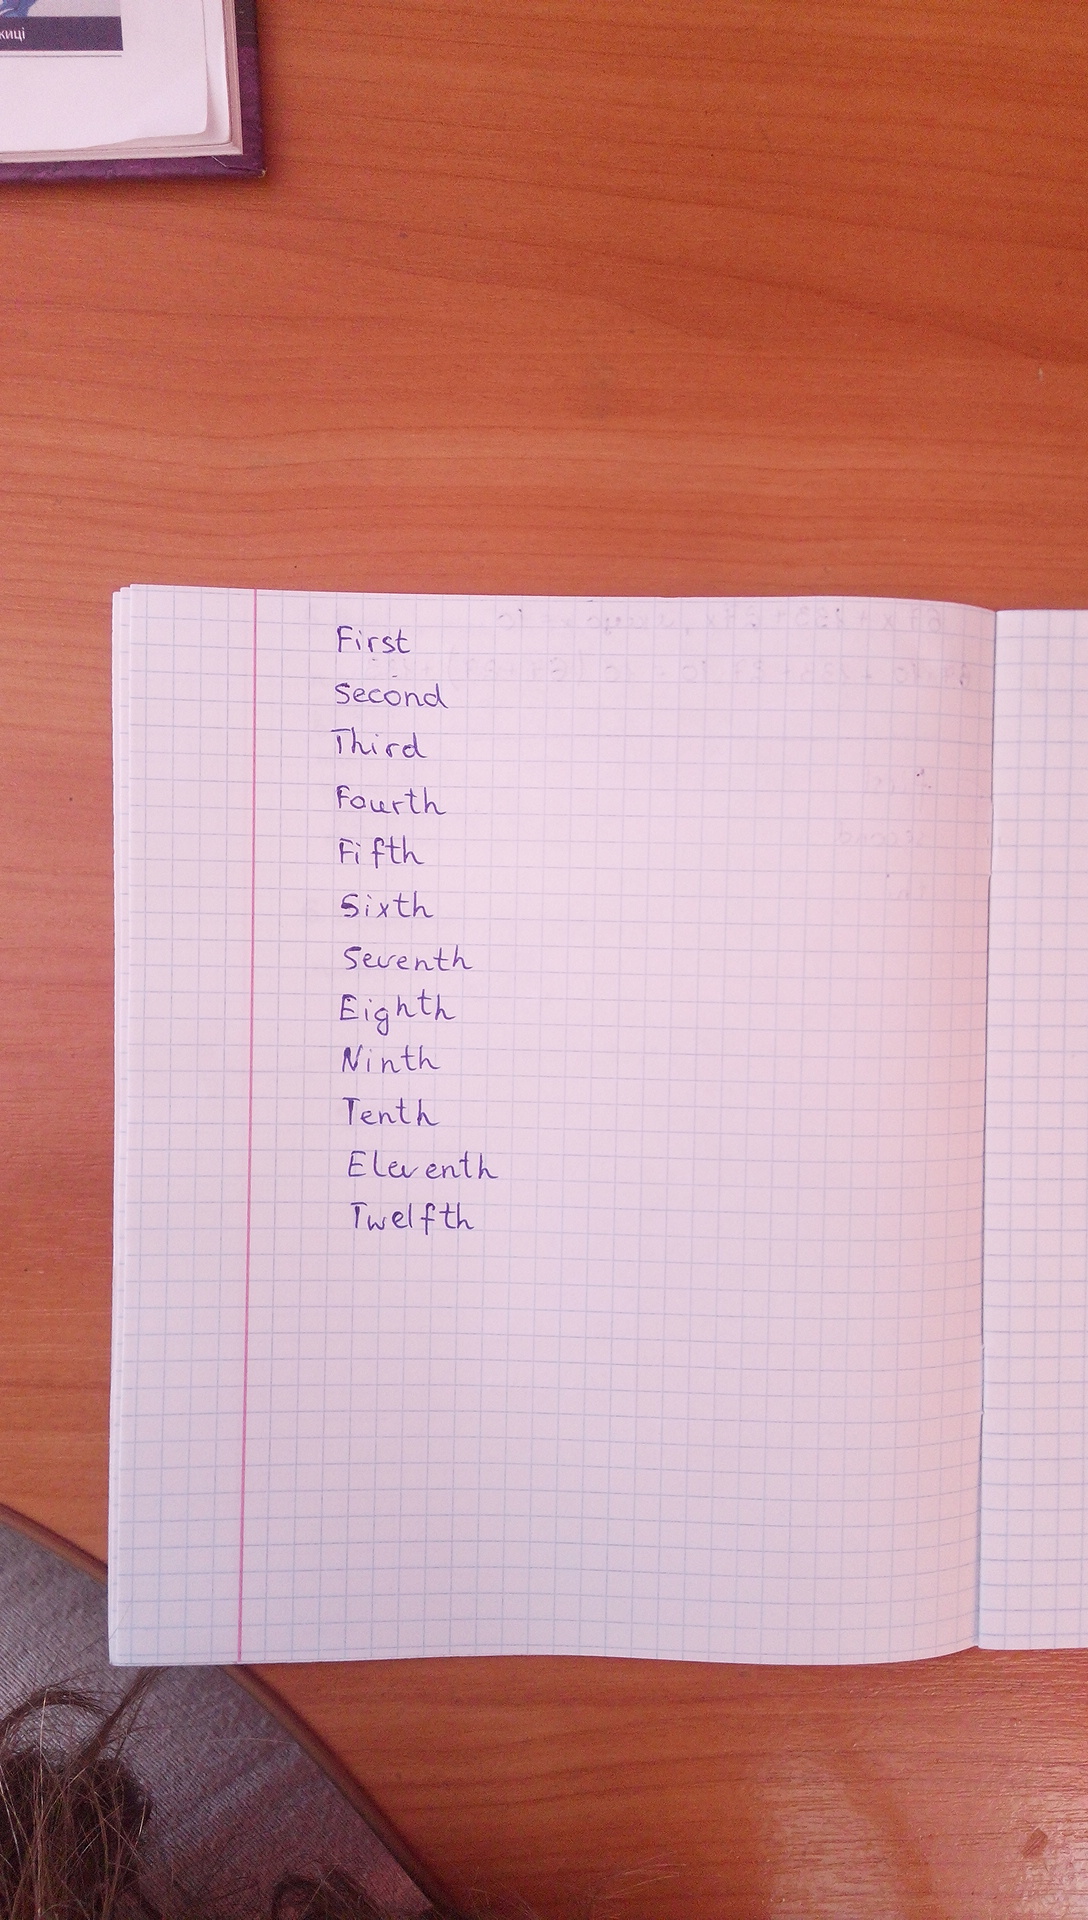 жиці
First
Second
Third
Fourth
Fifth
Sixth
Seventh
Eighth
Ninth
Tenth
Eleventh
Twelfth